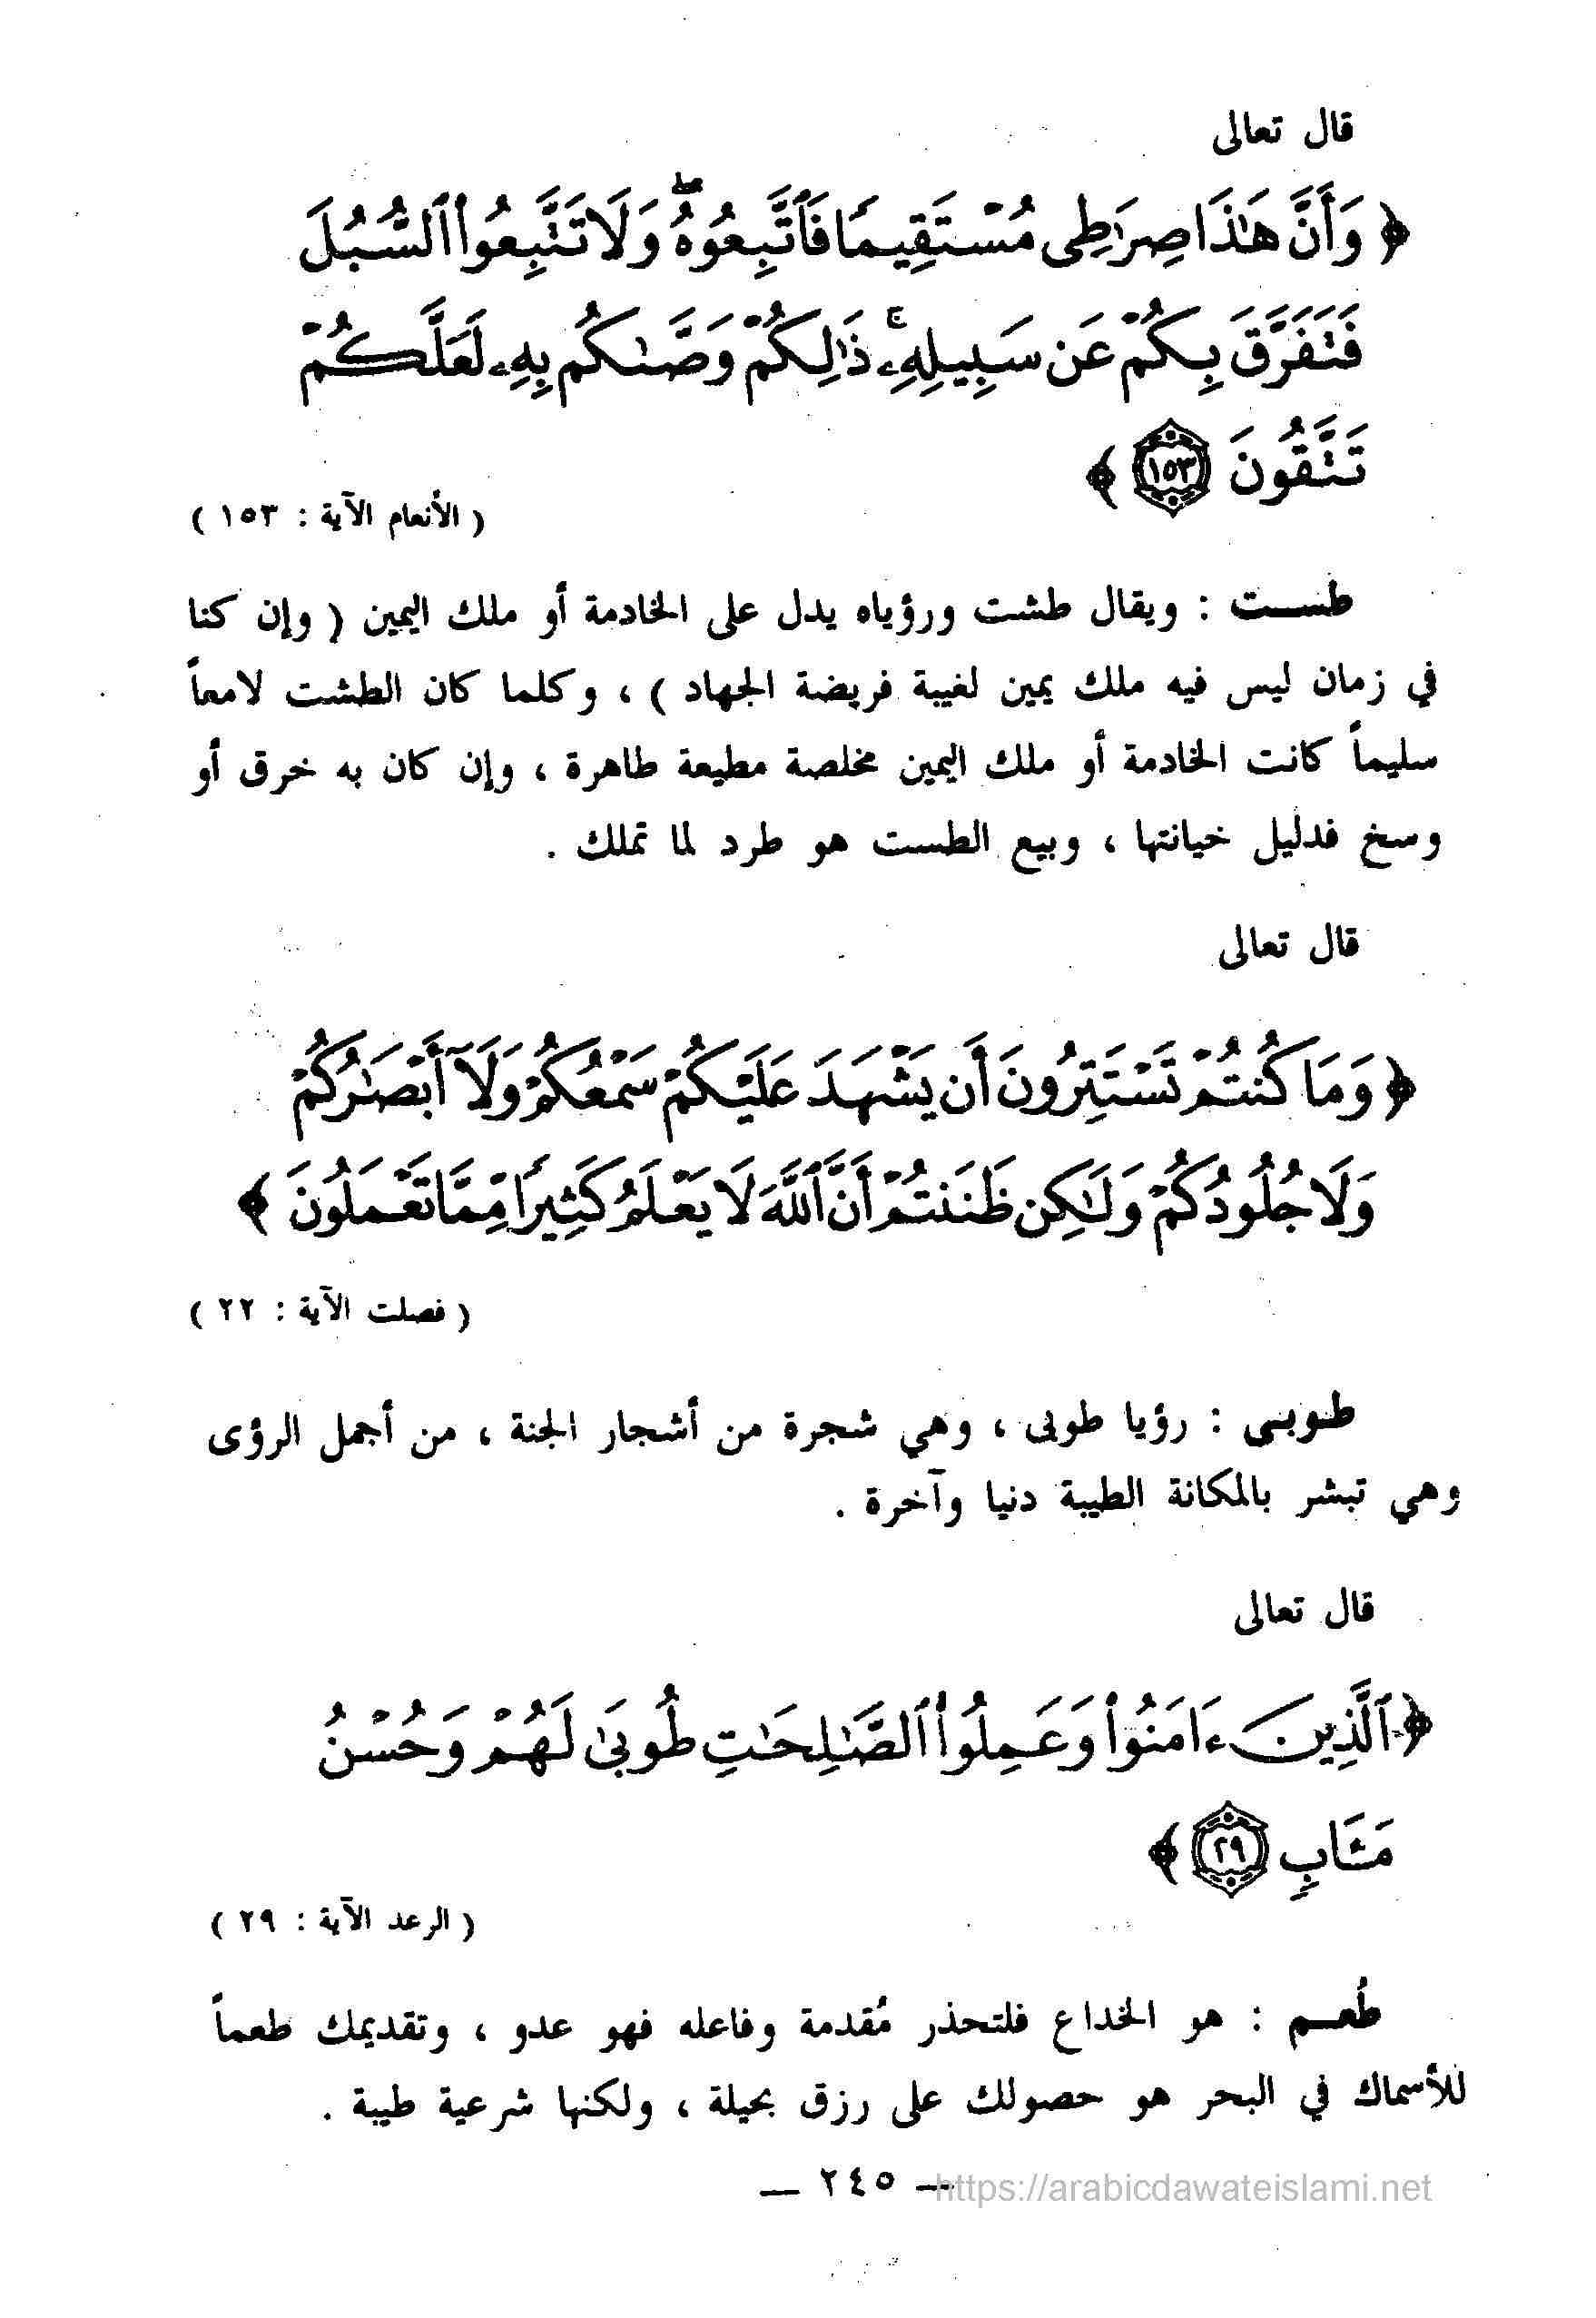 قال تعالى
﴿ وَأَنَّ هَٰذَا صِرَٰطِى مُسْتَقِيمًا فَٱتَّبِعُوهُ ۖ وَلَا تَتَّبِعُوا۟ ٱلسُّبُلَ
فَتَفَرَّقَ بِكُمْ عَن سَبِيلِهِۦ ۚ ذَٰلِكُمْ وَصَّىٰكُم بِهِۦ لَعَلَّكُمْ
تَتَّقُونَ ١٥٣ ﴾
( الأنعام الآية : ١٥٣ )
طست : ويقال طشت ورؤياه يدل على الخادمة أو ملك اليمين ( وإن كنا
في زمان ليس فيه ملك يمين لغيبة فريضة الجهاد ) ، وكلما كان الطشت لامعاً
سليماً كانت الخادمة أو ملك اليمين مخلصة مطيعة طاهرة ، وإن كان به خرق أو
وسخ فدليل خيانتها ، وبيع الطست هو طرد لما تملك .
قال تعالى
﴿ وَمَا كُنتُمْ تَسْتَتِرُونَ أَن يَشْهَدَ عَلَيْكُمْ سَمْعُكُمْ وَلَآ أَبْصَٰرُكُمْ
وَلَا جُلُودُكُمْ وَلَٰكِن ظَنَنتُمْ أَنَّ ٱللَّهَ لَا يَعْلَمُ كَثِيرًا مِّمَّا تَعْمَلُونَ ﴾
( فصلت الآية : ٢٢ )
طوبى : رؤيا طوبى ، وهي شجرة من أشجار الجنة ، من أجمل الرؤى
وهي تبشر بالمكانة الطيبة دنيا وآخرة .
قال تعالى
﴿ ٱلَّذِينَ ءَامَنُوا۟ وَعَمِلُوا۟ ٱلصَّٰلِحَٰتِ طُوبَىٰ لَهُمْ وَحُسْنُ
مَـَٔابٍ ٢٩ ﴾
( الرعد الآية : ٢٩ )
طُعم : هو الخداع فلتحذر مُقدمة وفاعله فهو عدو ، وتقديمك طعماً
للأسماك في البحر هو حصولك على رزق بحيلة ، ولكنها شرعية طيبة .
— ٢٤٥ —
https://arabicdawateislami.net